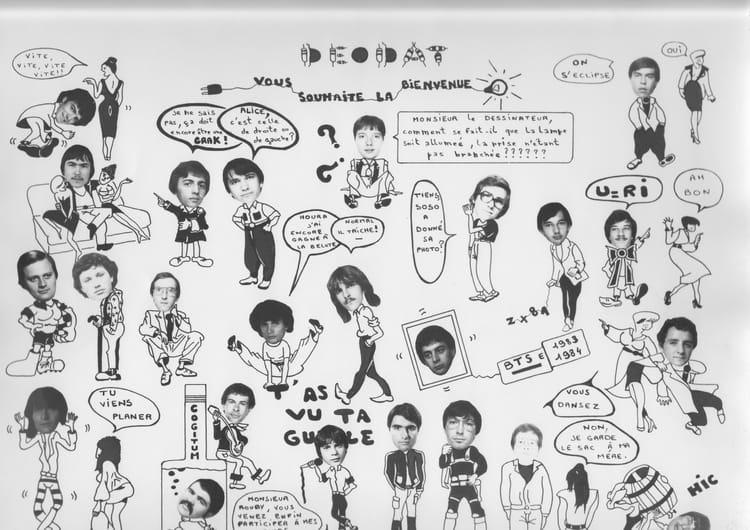 DEODAT
VOUS
SOUHAITE LA
BIENVENUE
VITE,
VITE, VITE
VITE!!
JE NE SAIS
PAS, ÇA DOIT
ENCORE ÊTRE UNE
GRAK!
ALICE,
C'EST CELLE
DE DROITE OU
DE GAUCHE?
?
?
MONSIEUR LE DESSINATEUR,
COMMENT SE FAIT-IL QUE LA LAMPE
SOIT ALLUMEE, LA PRISE N'ETANT
PAS BRANCHEE??????
ON
S'ECLIPSE
OUI
HOURA
J'AI
ENCORE
GAGNÉ À
LA BELOTE
NORMAL
IL TRICHE!
TIENS
SOSO
A
DONNÉ
SA
PHOTO?
U=RI
AH
BON
Z x 8 A
BTS E
1983
1984
TU
VIENS
PLANER
COGITUM
T'AS
VU TA
GUEULE
VOUS
DANSEZ
NON,
JE GARDE
LE SAC À MA
MÈRE.
HIC
MONSIEUR
ROUBY, VOUS
VENEZ ENFIN
PARTICIPER À MES